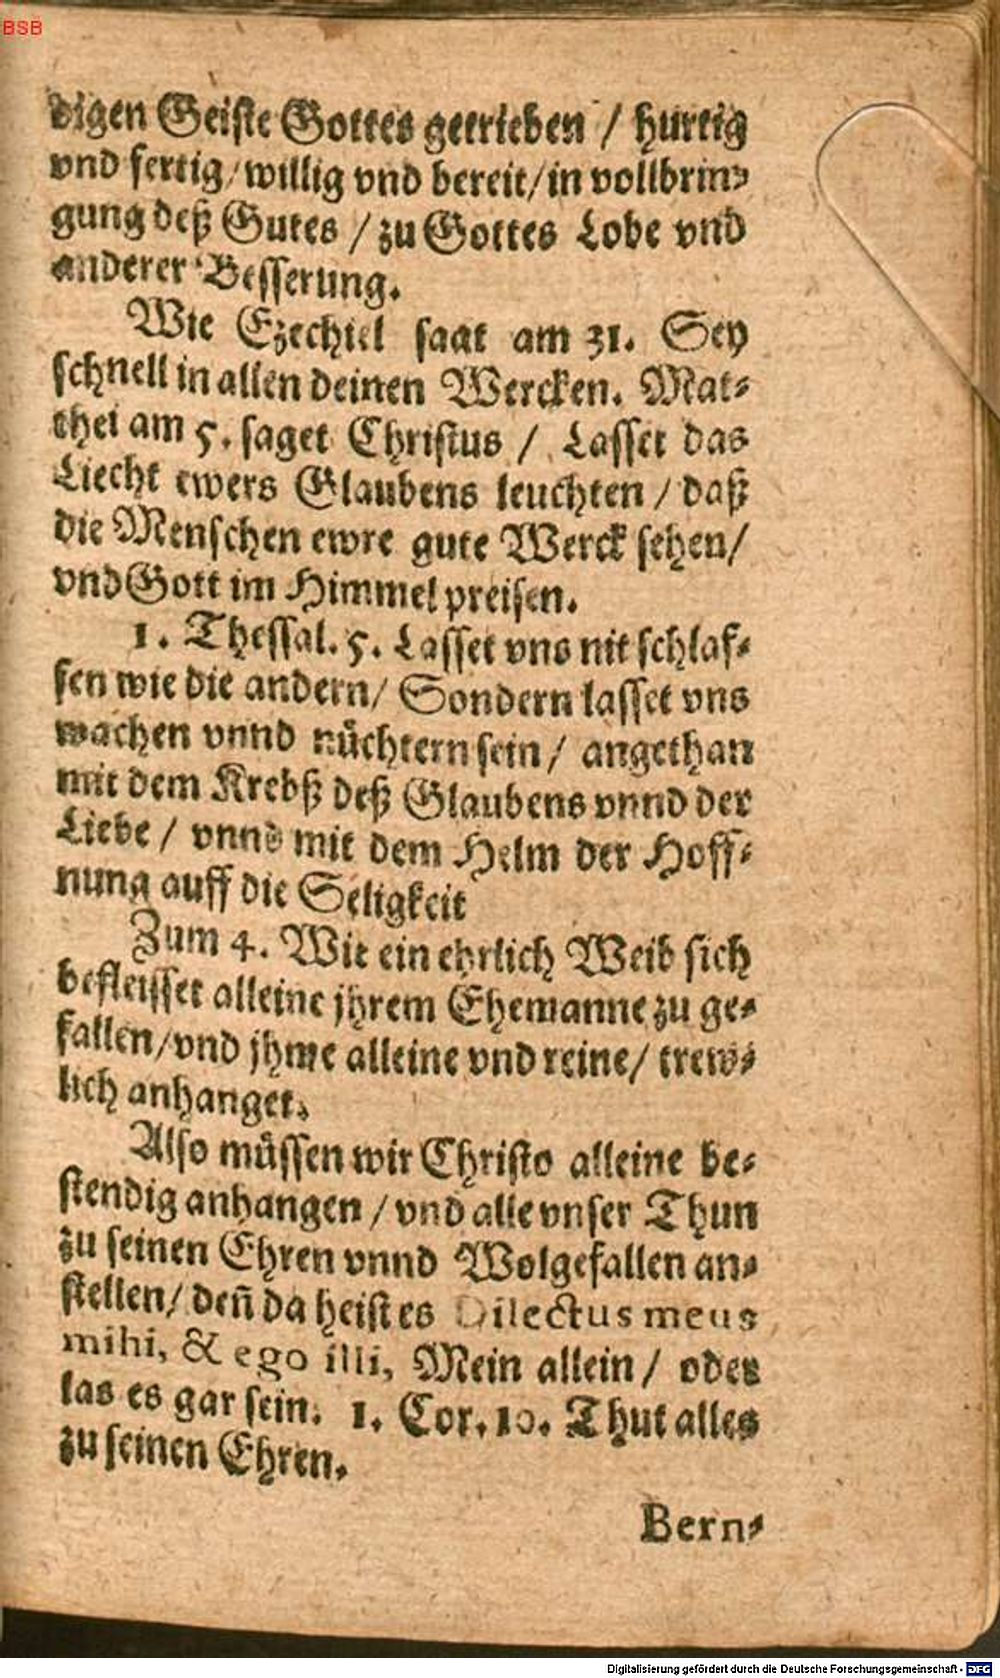 BSB
digen Geiste Gottes getrieben / hurtig
vnd fertig / willig vnd bereit / in vollbrin⸗
gung deß Gutes / zu Gottes Lobe vnd
anderer Besserung.
Wie Ezechiel saat am 31. Sey
schnell in allen deinen Wercken. Mat⸗
thei am 5. saget Christus / Lasset das
Liecht ewers Glaubens leuchten / daß
die Menschen ewre gute Werck sehen /
vnd Gott im Himmel preisen.
1. Thessal. 5. Lasset vns nit schlaf⸗
fen wie die andern / Sondern lasset vns
wachen vnnd nüchtern sein / angethan
mit dem Krebß deß Glaubens vnnd der
Liebe / vnnd mit dem Helm der Hoff⸗
nung auff die Seligkeit
Zum 4. Wie ein ehrlich Weib sich
befleisset alleine jhrem Ehemanne zu ge⸗
fallen / vnd jhme alleine vnd reine / trew⸗
lich anhanget.
Also müssen wir Christo alleine be⸗
stendig anhangen / vnd alle vnser Thun
zu seinen Ehren vnnd Wolgefallen an⸗
stellen / deñ da heist es Dilectus meus
mihi, & ego illi, Mein allein / oder
las es gar sein. 1. Cor. 10. Thut alles
zu seinen Ehren.
Bern⸗
Digitalisierung gefördert durch die Deutsche Forschungsgemeinschaft - DFG